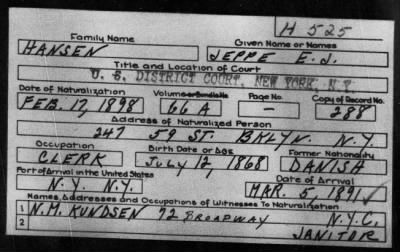 H 525
Family Name Given Name or Names
HANSEN JEPPE E.J.
Title and Location of Court
U. S. DISTRICT COURT, NEW YORK, N.Y.
Date of Naturalization Volume or Bundle No. Page No. Copy of Record No.
FEB. 17, 1898 66 A 288
Address of Naturalized Person
247 59 ST. BKLYN. N.Y.
Occupation Birth Date or Age Former Nationality
CLERK JULY 12, 1868 DANISH
Port of Arrival in the United States Date of Arrival
N.Y. N.Y. MAR. 5, 1891
Names, Addresses and Occupations of Witnesses To Naturalization
1 N.M. KUNDSEN 72 BROADWAY N.Y.C.
2 JANITOR